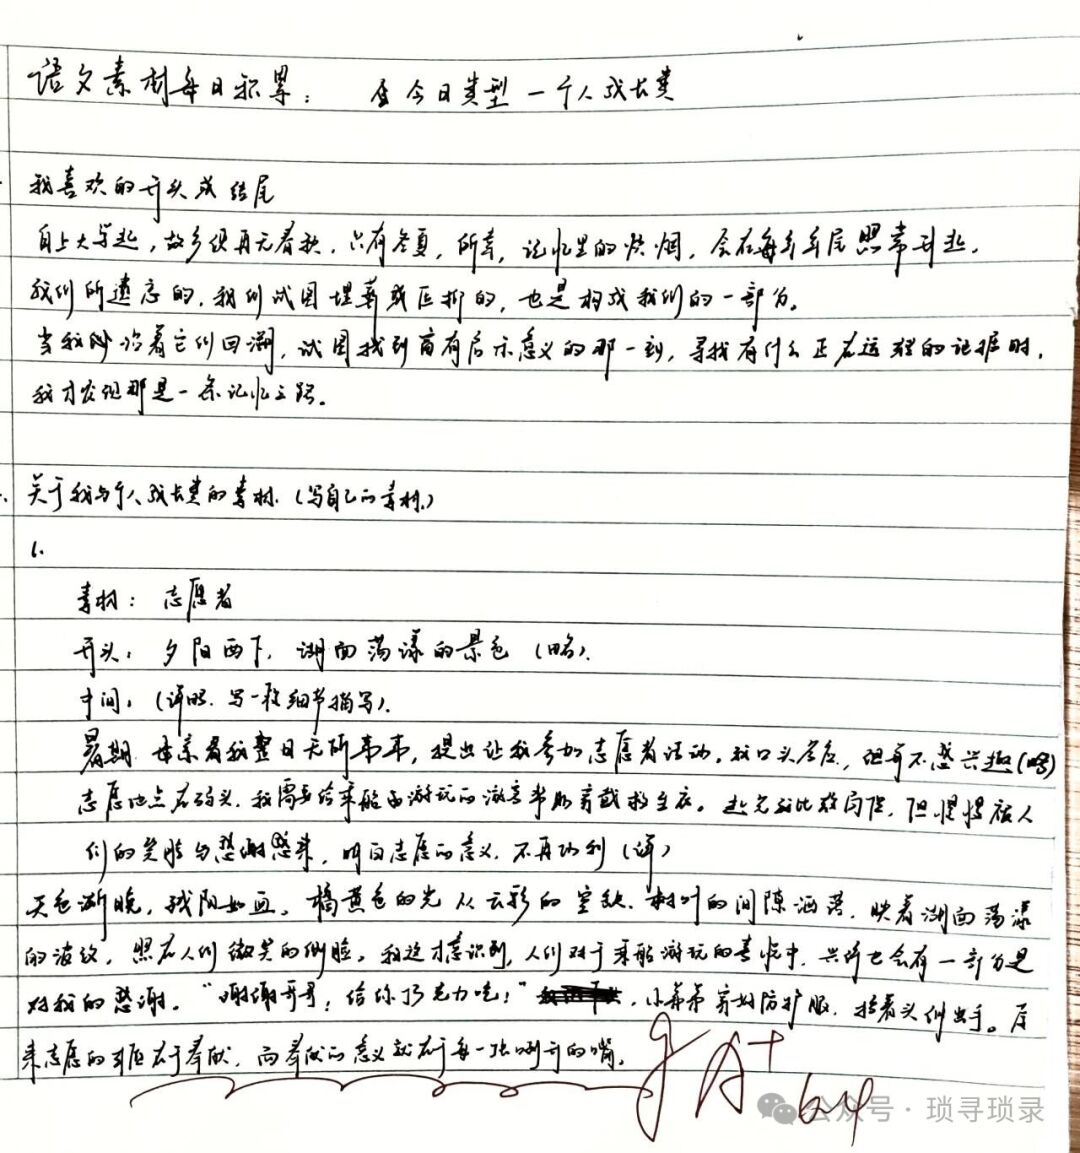 语文素材每日积累： 今日类型—个人成长类
我喜欢的开头或结尾
自上大学起，故乡便再无春秋，只有冬夏，所幸，记忆里的炊烟，会在每年年尾照常升起。
我们所遗忘的，我们试图埋葬或压抑的，也是构成我们的一部分。
当我们沿着它们回溯，试图找到富有启示意义的那一刻，寻找有什么正在运转的证据时，
我才发现那是一条记忆之路。
关于我与个人成长类的素材.（写自己的素材）
1.
素材：志愿者
开头：夕阳西下，湖面荡漾的景色（略）.
中间：（详略.写一段细节描写）.
暑期.母亲看我整日无所事事，提出让我参加志愿者活动。我口头答应，但并不感兴趣（略）
志愿地点在码头.我需要给乘船游玩的游客 穿戴救生衣。起先我比较局促，但慢慢被人
们的笑脸与感谢感染，明白志愿的意义.不再功利（详）
天色渐晚，残阳如血。橘黄色的光从云彩的空缺.树叶的间隙洒落，映着湖面荡漾
的波纹，照在人们微笑的侧脸。我这才意识到，人们对于乘船游玩的喜悦中，兴许也会有一部分是
对我的感谢。“谢谢哥哥！给你巧克力吃！” ，小弟弟穿好防护服，抬着头伸出手。原
来志愿的 在于奉献，而奉献的意义就在于每一张咧开的嘴。
A+
公众号·琐寻琐录